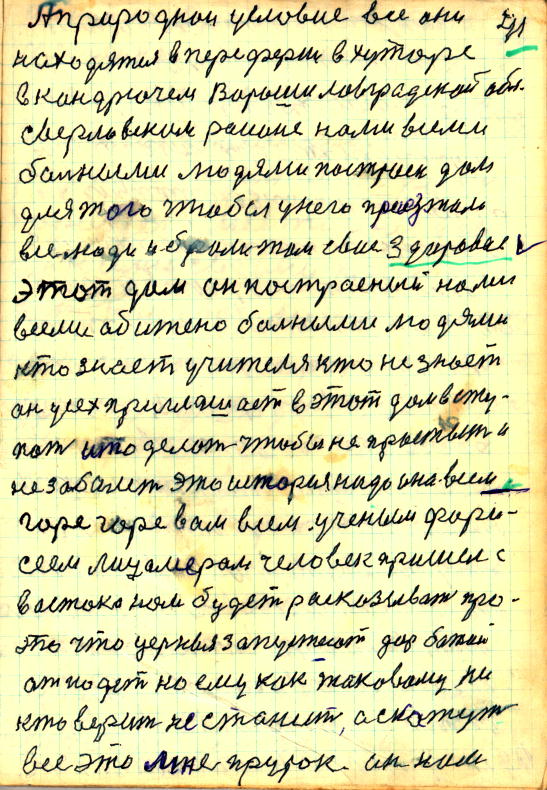 А природнои условие все они
находятся в переферии в хуторе
в кандрючем Варошиловградской обл.
сверловском районе нами всеми
болными людями построен дом
для того чтобы у него приезжали
все люди и брали там свое здоровие
этот дом он построеный нами
всеми абижено болными людями
кто знает учителя кто не знает
он усех приглашает в этот дом всту-
пат што делат чтобы не простыт и
не заболет это история надо она всем
горе горе вам всем ученым фари-
сеем лицамерам человек пришел с
востока нам будет расказыват про
это что церквя запустеют дар божий
отподет но ему как таковому ни
кто верит не станит, а скажут
все это мне пруток он нам